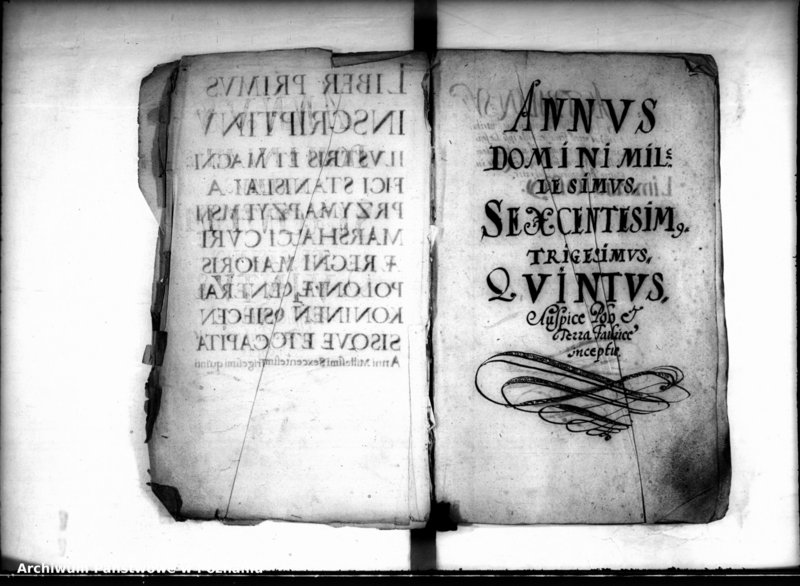 LIBER PRIMVS
INSCRIPTINV
ILVSTRIS ET MAGNI
FICI STANISLAI A
PRZYMA PZYIEMSKI
MARSHALCI CVRI
Æ REGNI MAIORIS
POLONIÆ GENERAL
KONINEN OSIECEN
SISQVE ETC CAPITA
Anni Millesimi Sexcentesimi Trigesimi quinti
ANNVS
DOMINI MIL:
LESIMVS.
SEXCENTESIM9.
TRIGESIMVS.
QVINTVS.
Auspice Deo &
Terra faustice
inceptus.
Archiwum Państwowe w Poznaniu